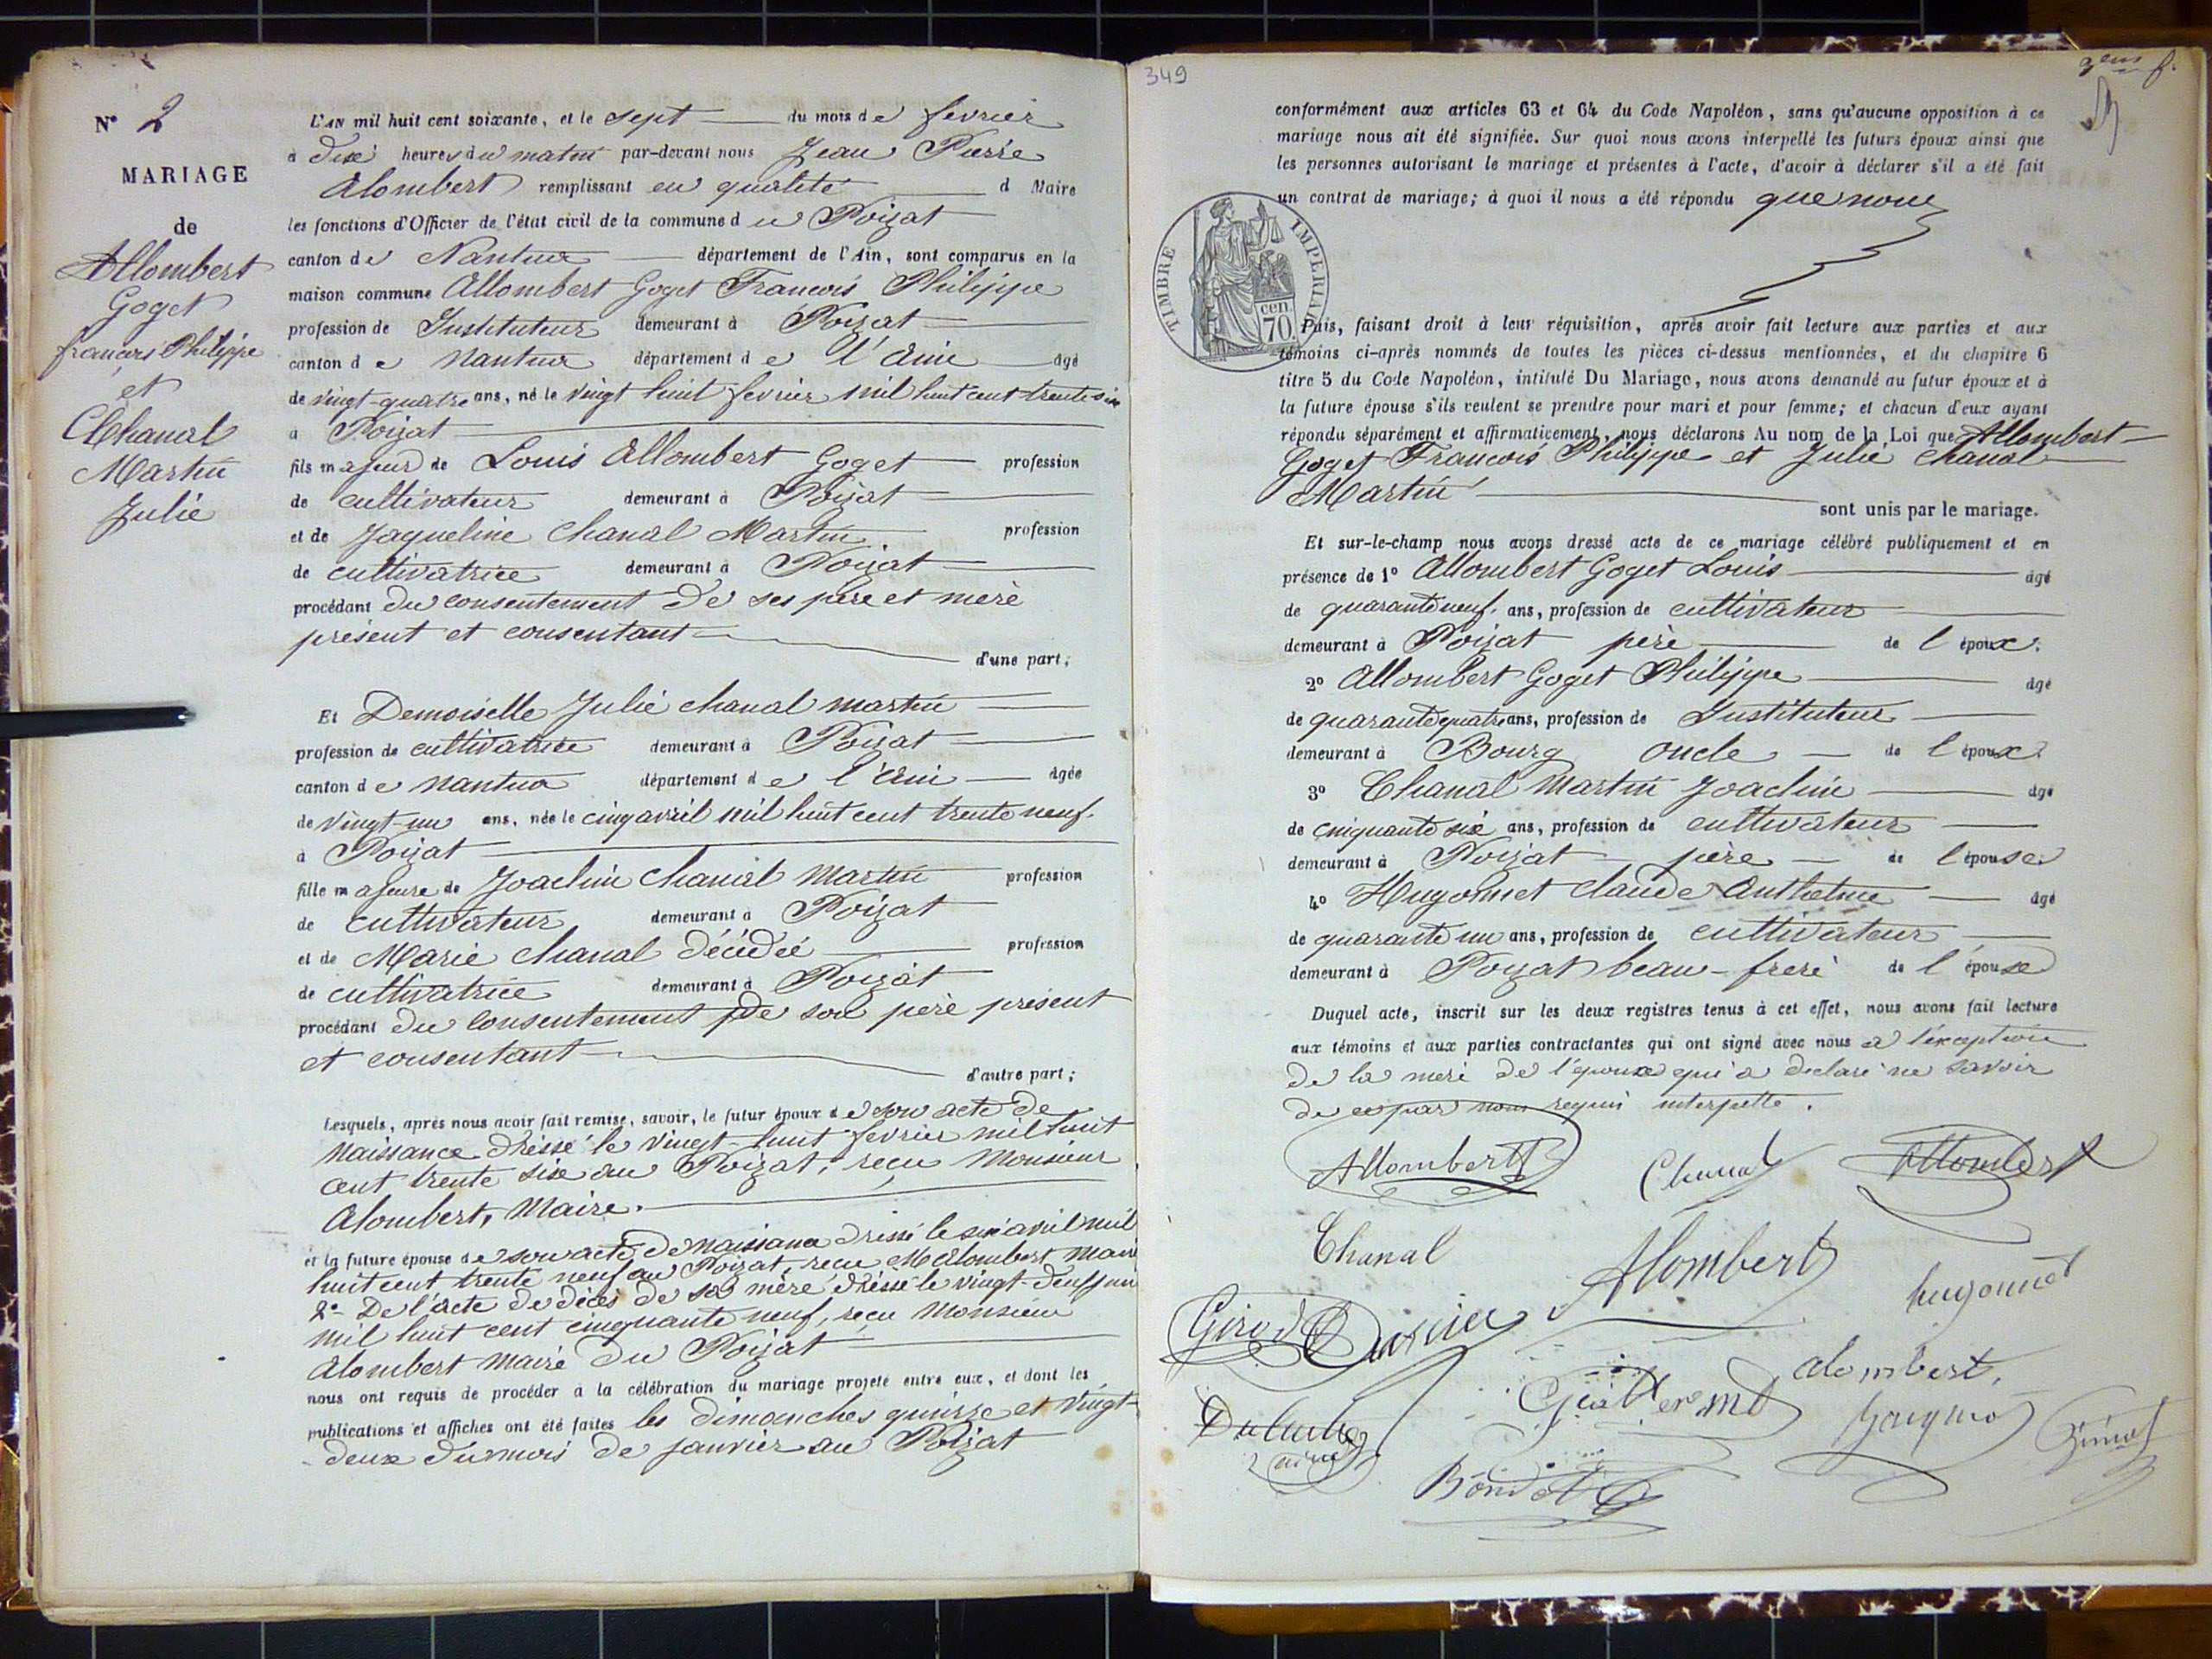 N° 2
MARIAGE
de
Allombert
Goget
françois Philippe
et
Chanal
Martin
Julie
L'AN mil huit cent soixante, et le sept du mois de fevrier
à dix heures du matin par-devant nous Jean Pierre
Alombert remplissant en qualité d Maire
les fonctions d'Officier de l'état civil de la commune d u Poizat
canton de Nantua département de l'Ain, sont comparus en la
maison commune Allombert Goget François Philippe
profession de Instituteur demeurant à Poizat
canton d e Nantua département d e l'Ain âgé
de vingt-quatre ans, né le vingt huit fevrier mil huit cent trente six
à Poizat
fils majeur de Louis Allombert Goget profession
de cultivateur demeurant à Poizat
et de Jaqueline Chanal Martin profession
de cultivatrice demeurant à Poizat
procédant du consentement de ses père et mère
présent et consentant
d'une part;
Et Demoiselle Julie chanal martin
profession de cultivatrice demeurant à Poizat
canton d e nantua département d e l'Ain âgée
de vingt-un ans, née le cinq avril mil huit cent trente neuf.
à Poizat
fille majeure de Joachim Chanal Martin profession
de cultivateur demeurant à Poizat
et de Marie Chanal décédée profession
de cultivatrice demeurant à Poizat
procédant du consentement de son père présent
et consentant
d'autre part;
Lesquels, après nous avoir fait remise, savoir, le futur époux d e son acte de
naissance dressé le vingt-huit fevrier mil huit
cent trente six au Poizat, reçu Monsieur
Alombert, Maire.
et la future épouse d e son acte de naissance dressé le six avril mil
huit cent trente neuf au Poizat, reçu M Alombert Maire
2° De l'acte de décès de sa mère dressé le vingt-deux juin
mil huit cent cinquante neuf, reçu Monsieur
Alombert maire du Poizat
nous ont requis de procéder à la célébration du mariage projeté entre eux, et dont les
publications et affiches ont été faites les dimanches quinze et vingt-
deux du mois de janvier au Poizat
349
3em f.
conformément aux articles 63 et 64 du Code Napoléon, sans qu'aucune opposition à ce
mariage nous ait été signifiée. Sur quoi nous avons interpellé les futurs époux ainsi que
les personnes autorisant le mariage et présentes à l'acte, d'avoir à déclarer s'il a été fait
un contrat de mariage; à quoi il nous a été répondu que non
TIMBRE IMPERIAL
cen.
70
Puis, faisant droit à leur réquisition, après avoir fait lecture aux parties et aux
témoins ci-après nommés de toutes les pièces ci-dessus mentionnées, et du chapitre 6
titre 5 du Code Napoléon, intitulé Du Mariage, nous avons demandé au futur époux et à
la future épouse s'ils veulent se prendre pour mari et pour femme; et chacun d'eux ayant
répondu séparément et affirmativement, nous déclarons Au nom de la Loi que Allombert
Goget François Philippe et Julie Chanal
Martin
sont unis par le mariage.
Et sur-le-champ nous avons dressé acte de ce mariage célébré publiquement et en
présence de 1° Allombert Goget Louis âgé
de quarante neuf ans, profession de cultivateur
demeurant à Poizat père de l époux.
2° Allombert Goget Philippe âgé
de quarante quatre ans, profession de Instituteur
demeurant à Bourg oncle de l époux
3° Chanal Martin Joachim âgé
de cinquante six ans, profession de cultivateur
demeurant à Poizat père de l épouse
4° Hugonnet Claude Anthelme âgé
de quarante un ans, profession de cultivateur
demeurant à Poizat beau-frere de l épouse
Duquel acte, inscrit sur les deux registres tenus à cet effet, nous avons fait lecture
aux témoins et aux parties contractantes qui ont signé avec nous a l'exception
de la mere de l'époux qui a declaré ne savoir
de ce par nous requis interpellé.
Allombert
Chanal
Allombert
Chanal
Alombert
hugonnet
Girod
alombert
Bondet